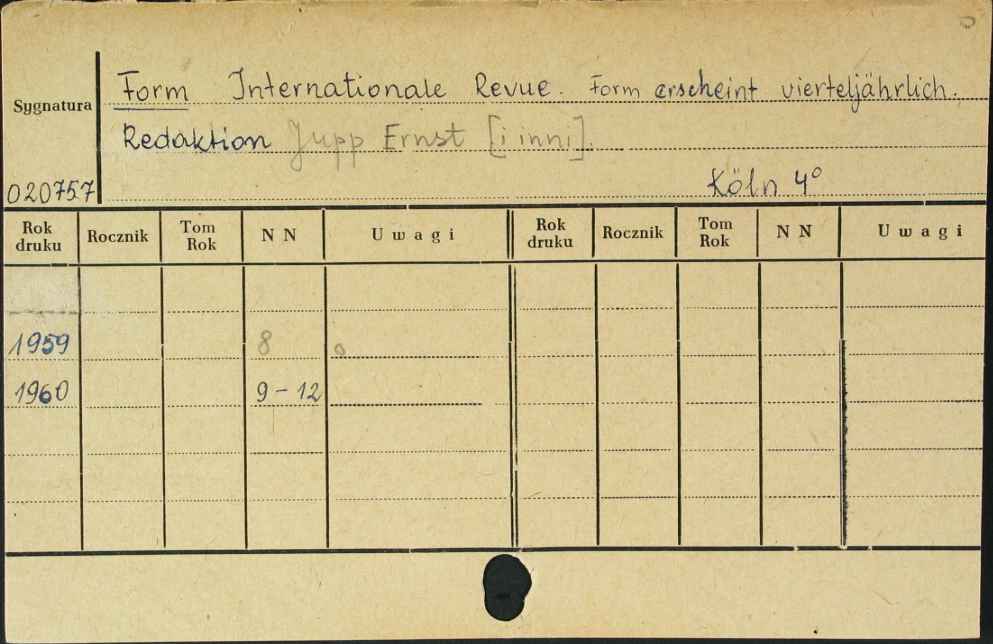 Form Internationale Revue. Form erscheint vierteljährlich.
Sygnatura
Redaktion Jupp Ernst [i inni].
020757 Köln 4°
Rok druku Rocznik Tom Rok N N Uwagi Rok druku Rocznik Tom Rok N N Uwagi
1959 8
1960 9-12